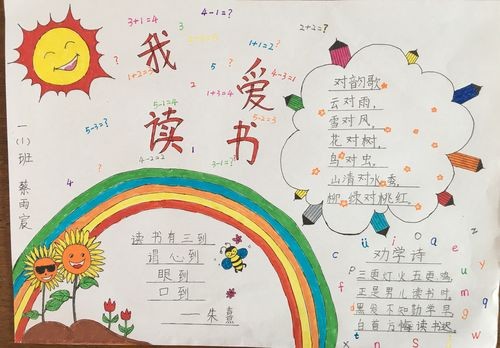 3+1=4
4-1=?
2+2=?
1+1=2?
1+2=3
4-3=1
1+3=4
5-1=4
5-2=3
5-3=?
4-2=2
3-1=?
4
7
我爱
读书
一(1)班 蔡雨宸
对韵歌
云对雨,
雪对风,
花对树,
鸟对虫,
山清对水秀,
柳绿对桃红。
读书有三到
谓心到
眼到
口到
——朱熹
劝学诗
三更灯火五更鸡,
正是男儿读书时。
黑发不知勤学早,
白首方悔读书迟。
c ü i o a e
q u d p f
x t n s